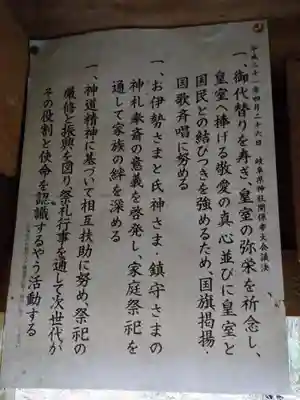 平成三十一年四月二十六日 岐阜県神社関係者大会議決
一、御代替りを寿ぎ皇室の弥栄を祈念し、
皇室へ捧げる敬愛の真心並びに皇室と
国民との結びつきを強めるため、国旗掲揚・
国歌斉唱に努める
一、お伊勢さまと氏神さま・鎮守さまの
神札奉斎の意義を啓発し、家庭祭祀を
通して家族の絆を深める
一、神道精神に基づいて相互扶助に努め、祭祀の
厳修と振興を図り祭礼行事を通して次世代が
その役割と使命を認識するやう活動する